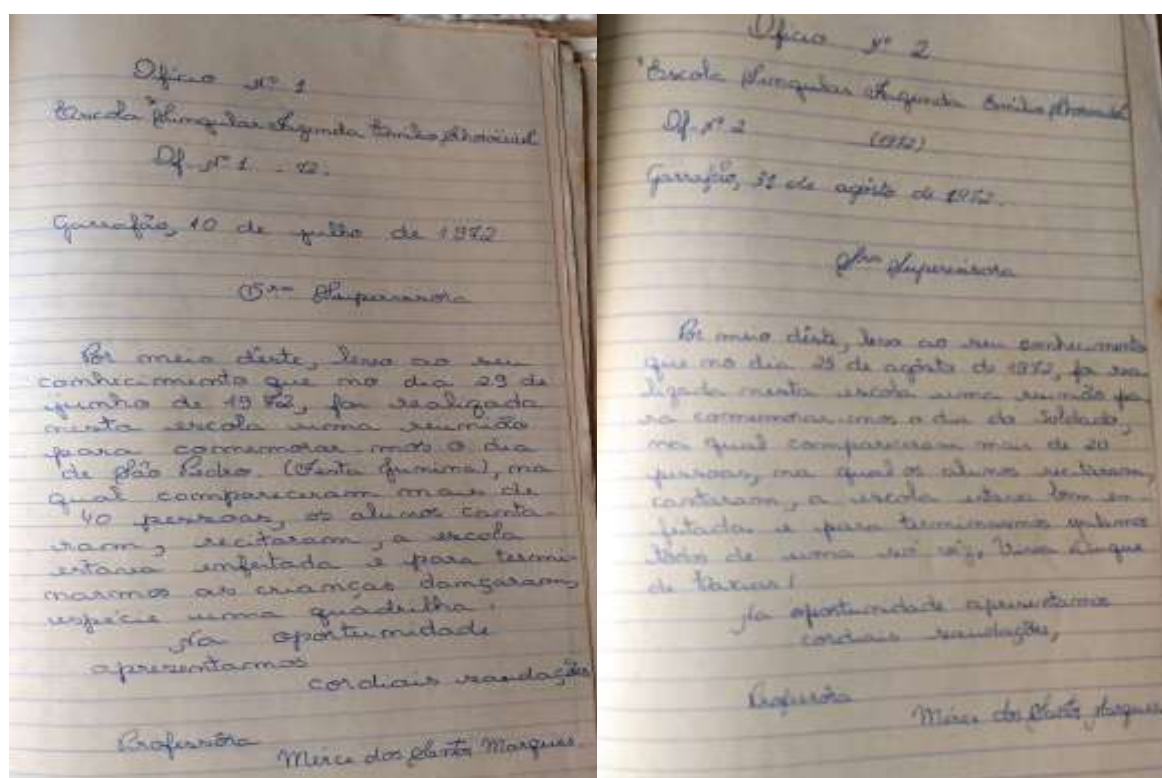 Oficio Nº 1
Escola Singular Fazenda Emilio
Of. Nº 1 - 72.
Garrafão, 10 de julho de 1972
Sra Supervisora
Por meio dêste, levo ao seu
conhecimento que no dia 29 de
junho de 1972, foi realizada
nesta escola uma reunião
para comemorar-mos o dia
de São Pedro. (Festa Junina), na
qual compareceram mais de
40 pessoas, os alunos canta-
ram, recitaram, a escola
estava enfeitada e para termi-
narmos as crianças dançaram,
espécie uma quadrilha.
Na oportunidade
apresentamos
cordiais saudações
Professôra
Merce dos Santos Marques.
Oficio Nº 2
Escola Singular Fazenda Emilio
Of. Nº 2 (1972)
Garrafão, 31 de agôsto de 1972.
Sra Supervisora
Por meio dêste, levo ao seu conhecimento
que no dia 25 de agôsto de 1972, foi rea-
lizada nesta escola uma reunião pa-
ra comemorar-mos o dia do Soldado,
na qual compareceram mais de 20
pessoas, na qual os alunos recitaram,
cantaram, a escola estava bem en-
feitada e para terminarmos gritamos
todos de uma só vêz, Viva Duque
de Caxias!
Na oportunidade apresentamos
cordiais saudações,
Professôra
Merce dos Santos Marques